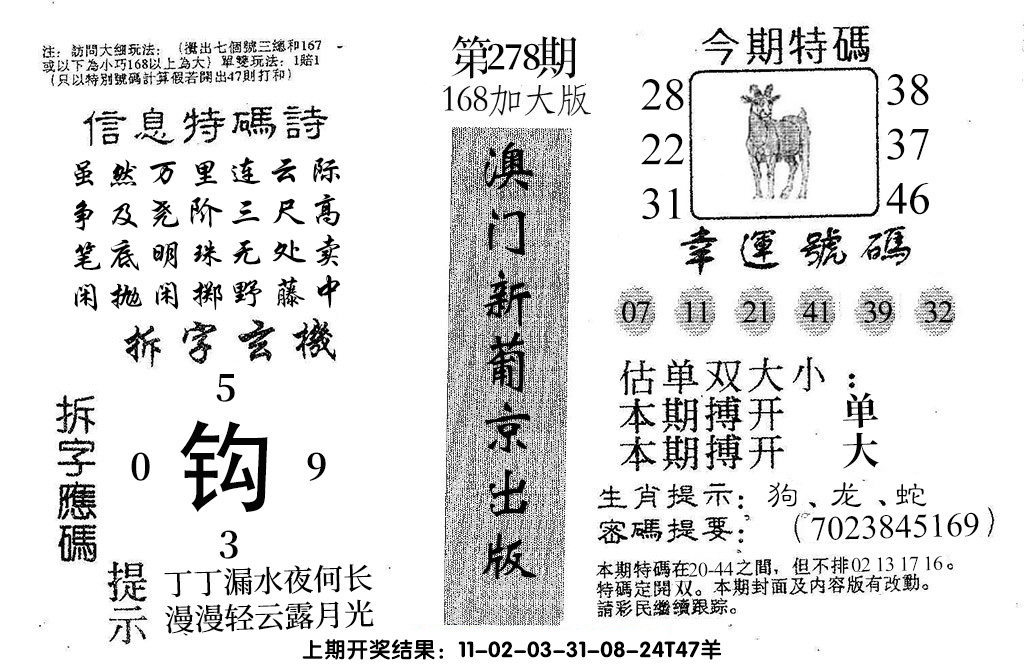 注：訪問大细玩法：（攪出七個號三總和167
或以下為小巧168以上為大）單雙玩法：1賠1
（只以特別號碼計算假若開出47則打和）
信息特碼詩
虽然万里连云际
争及尧阶三尺高
笔底明珠无处卖
闲抛闲掷野藤中
拆字玄機
拆字應碼
5
0 钩 9
3
提示
丁丁漏水夜何长
漫漫轻云露月光
第278期
168加大版
澳门新葡京出版
今期特碼
28 38
22 37
31 46
幸運號碼
07 11 21 41 39 32
估单双大小：
本期搏开 单
本期搏开 大
生肖提示：狗、龙、蛇
密碼提要：（7023845169）
本期特碼在20-44之間，但不排02 13 17 16。
特碼定開双。本期封面及内容版有改動。
請彩民繼續跟踪。
上期开奖结果：11-02-03-31-08-24T47羊